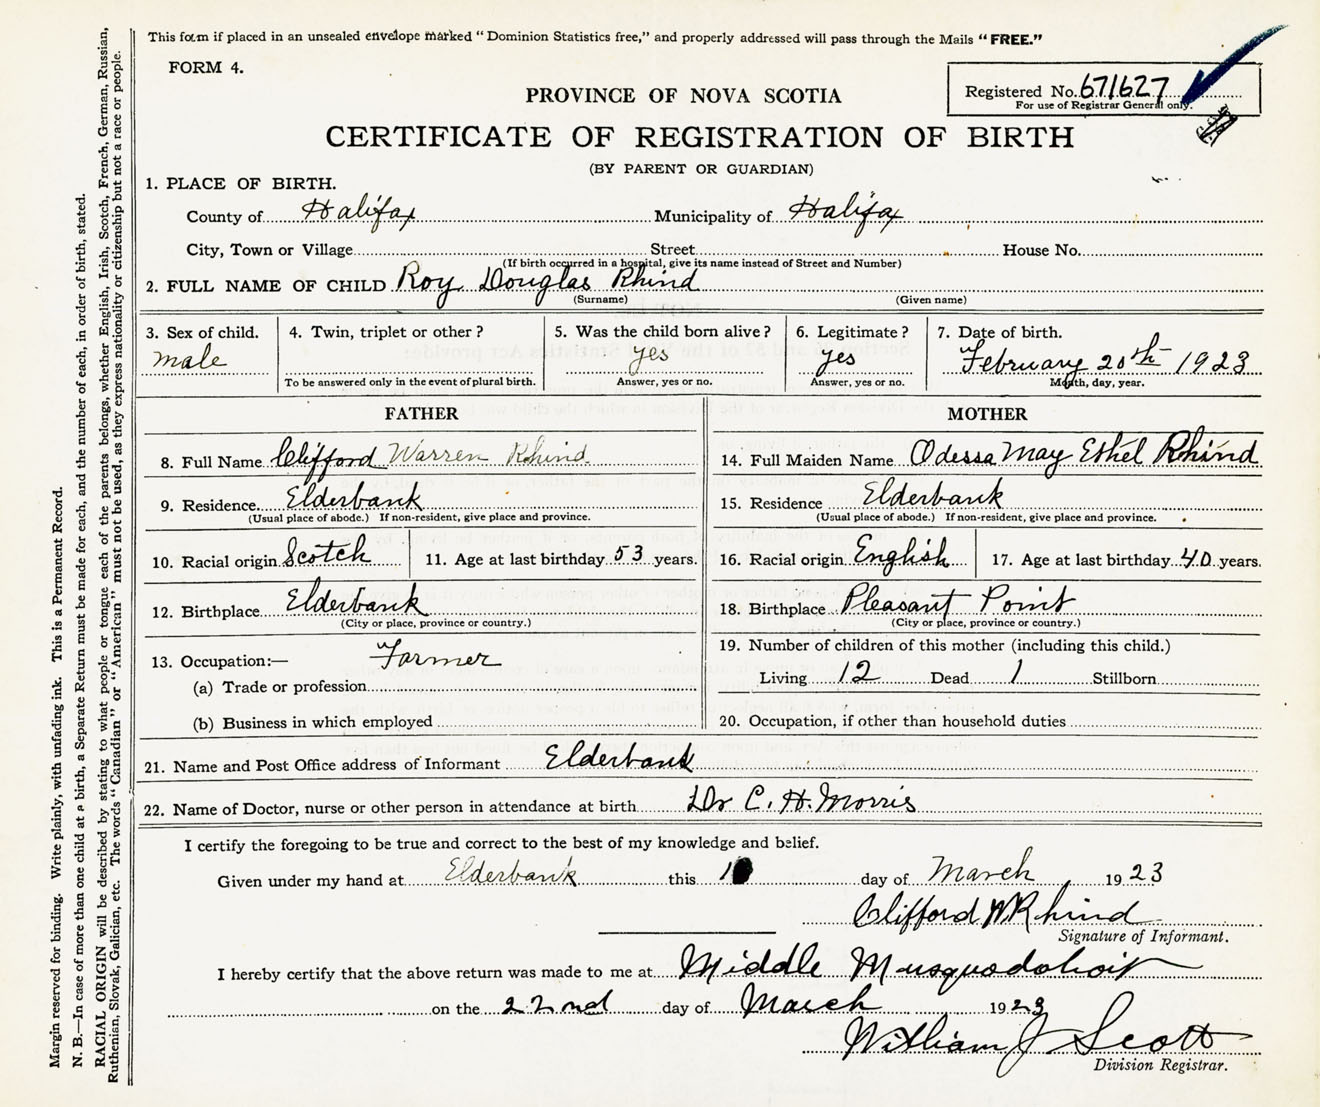 This form if placed in an unsealed envelope marked "Dominion Statistics free," and properly addressed will pass through the Mails "FREE."
FORM 4.
Registered No. 671627
For use of Registrar General only.
PROVINCE OF NOVA SCOTIA
CERTIFICATE OF REGISTRATION OF BIRTH
(BY PARENT OR GUARDIAN)
1. PLACE OF BIRTH.
County of Halifax Municipality of Halifax
City, Town or Village Street House No.
(If birth occurred in a hospital, give its name instead of Street and Number)
2. FULL NAME OF CHILD Roy Douglas Rhind
(Surname) (Given name)
3. Sex of child. 4. Twin, triplet or other? 5. Was the child born alive? 6. Legitimate? 7. Date of birth.
male yes yes February 20th 1923
To be answered only in the event of plural birth. Answer, yes or no. Answer, yes or no. Month, day, year.
FATHER MOTHER
8. Full Name Clifford Warren Rhind 14. Full Maiden Name Odessa May Ethel Rhind
9. Residence Elderbank 15. Residence Elderbank
(Usual place of abode.) If non-resident, give place and province. (Usual place of abode.) If non-resident, give place and province.
10. Racial origin Scotch 11. Age at last birthday 53 years. 16. Racial origin English 17. Age at last birthday 40 years.
12. Birthplace Elderbank 18. Birthplace Pleasant Point
(City or place, province or country.) (City or place, province or country.)
13. Occupation:— Farmer 19. Number of children of this mother (including this child.)
(a) Trade or profession Living 12 Dead 1 Stillborn
(b) Business in which employed 20. Occupation, if other than household duties
21. Name and Post Office address of Informant Elderbank
22. Name of Doctor, nurse or other person in attendance at birth Dr C. H. Morris
I certify the foregoing to be true and correct to the best of my knowledge and belief.
Given under my hand at Elderbank this day of March 1923
Clifford W Rhind
Signature of Informant.
I hereby certify that the above return was made to me at Middle Musquodoboit
on the 22nd day of March 1923
William J Scott
Division Registrar.
Margin reserved for binding. Write plainly, with unfading ink. This is a Permanent Record.
N. B.—In case of more than one child at a birth, a Separate Return must be made for each, and the number of each, in order of birth, stated.
RACIAL ORIGIN will be described by stating to what people or tongue each of the parents belongs, whether English, Irish, Scotch, French, German, Russian,
Ruthenian, Slovak, Galician, etc. The words "Canadian" or "American" must not be used, as they express nationality or citizenship but not a race or people.